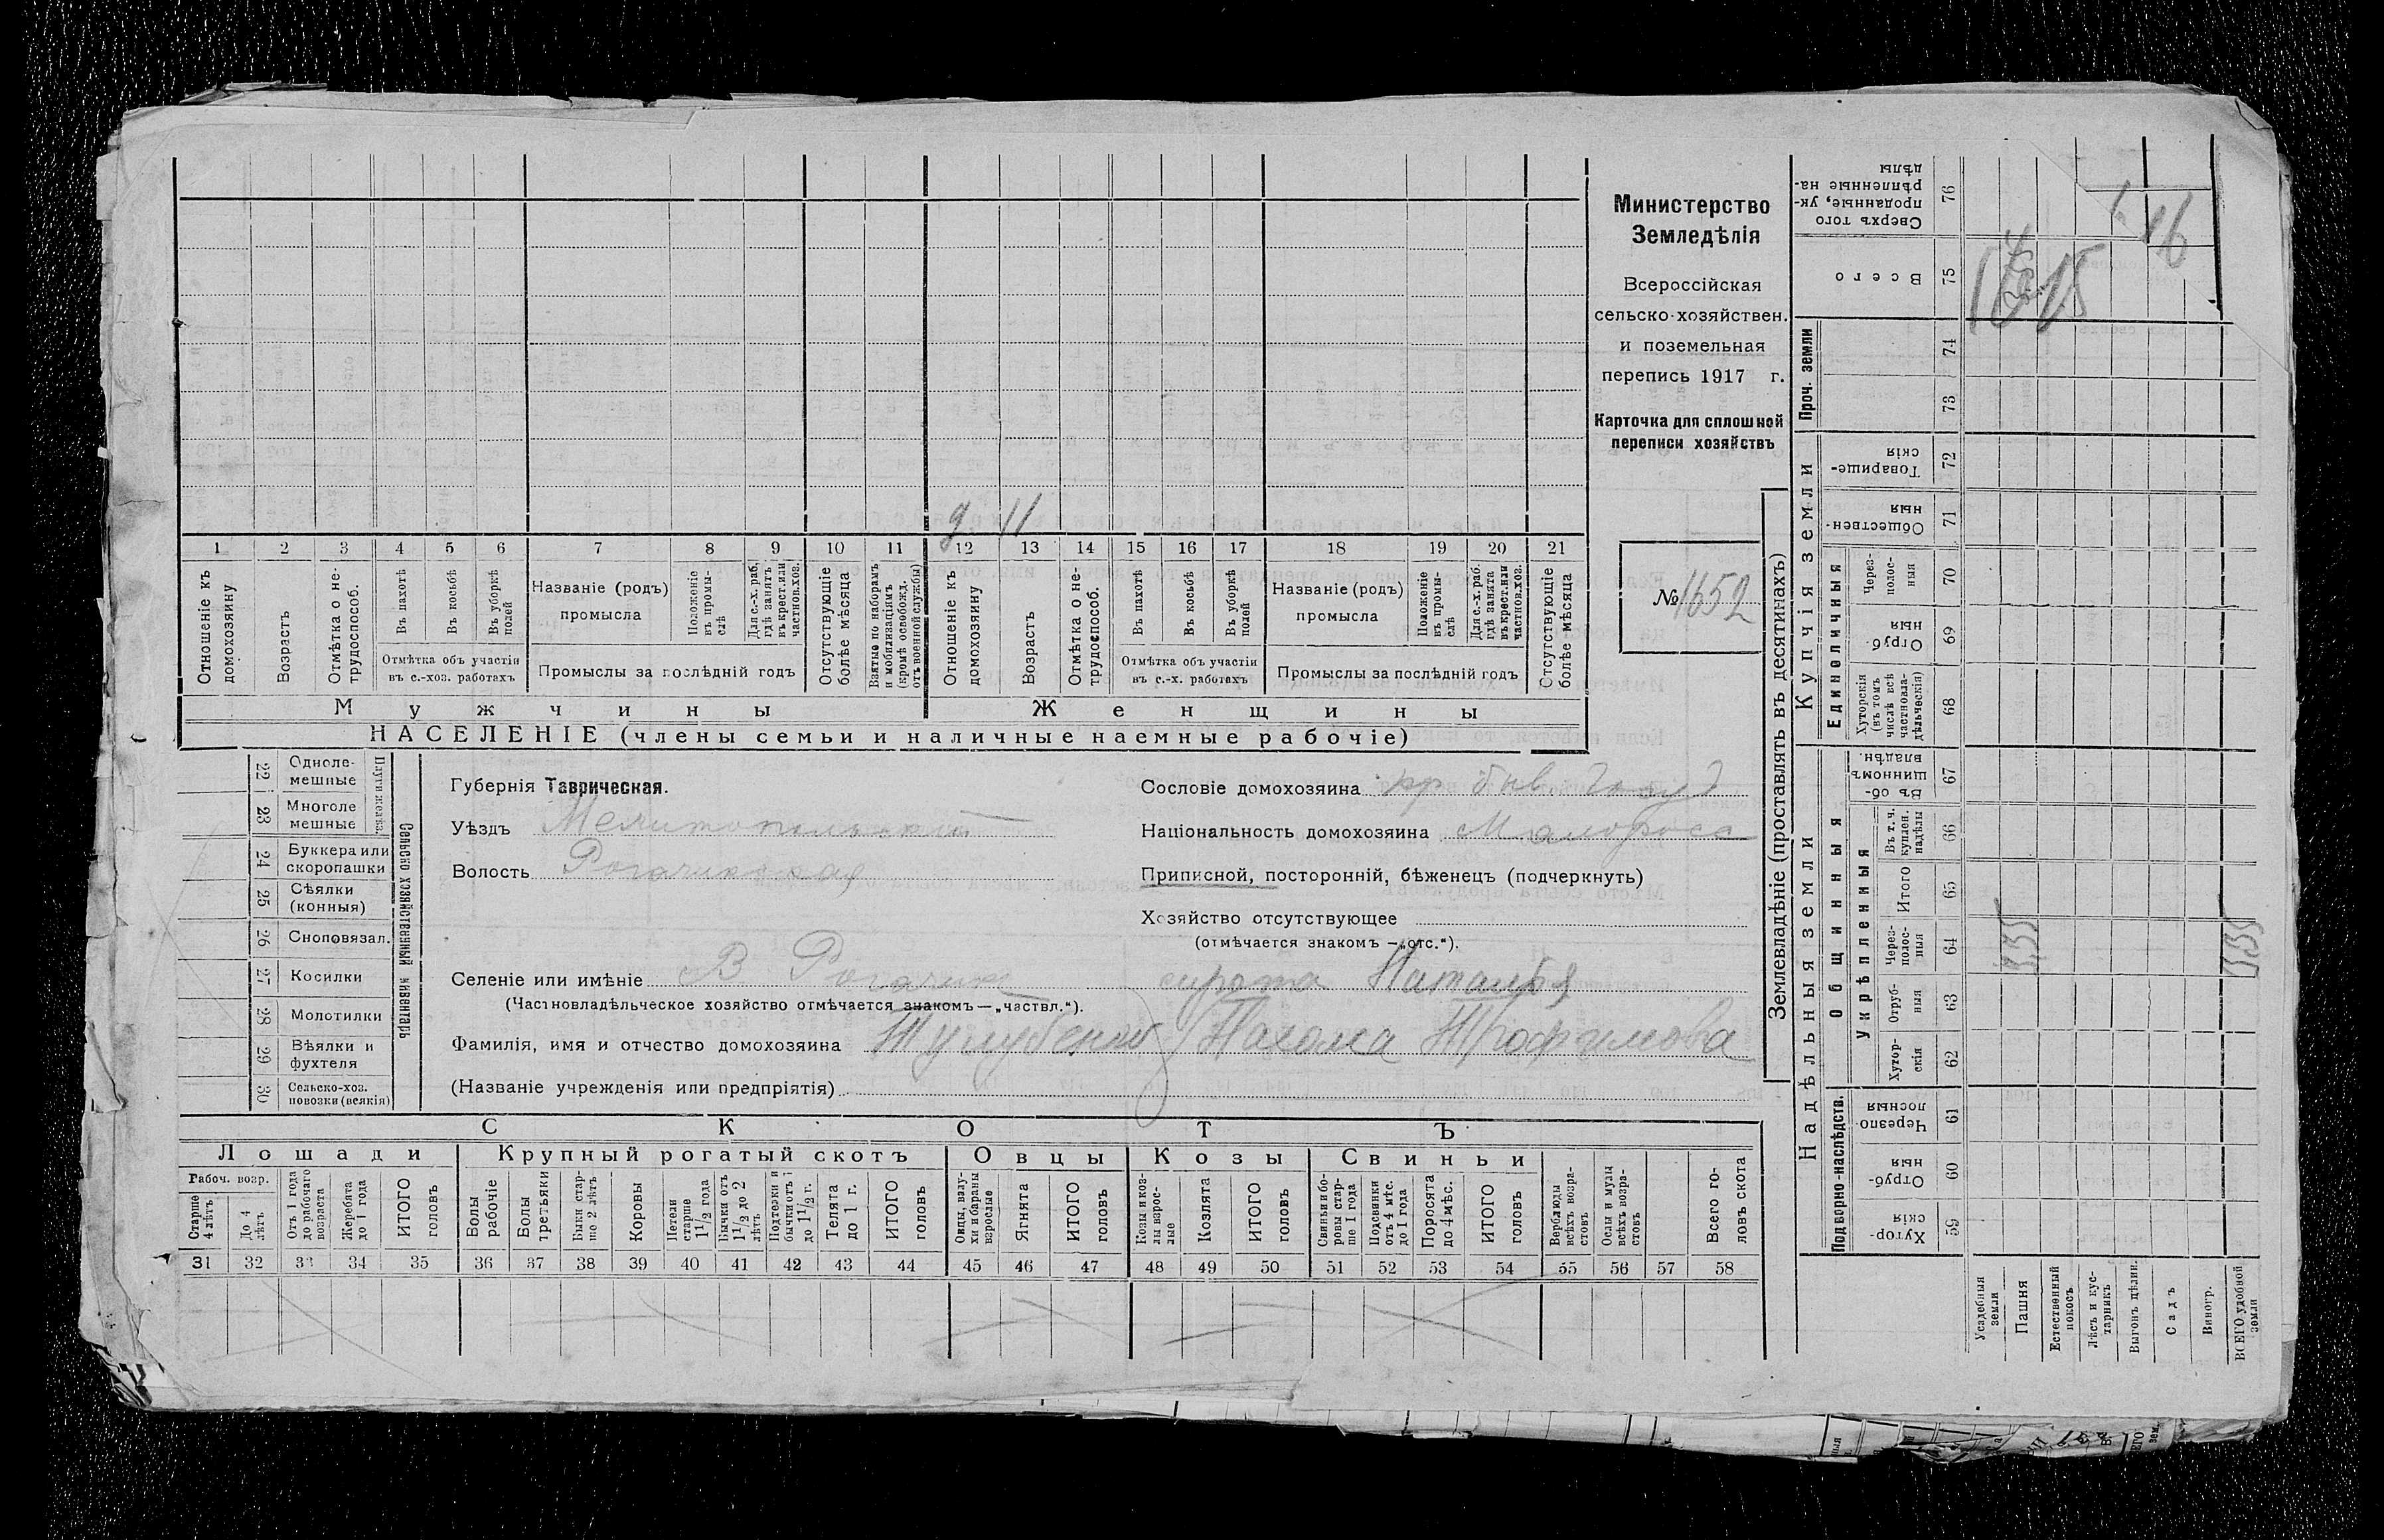 Министерство
Земледѣлія
Всероссійская
сельско-хозяйствен.
и поземельная
перепись 1917 г.
Карточка для сплошной
переписи хозяйствъ
№ 1652
д 11
1 2 3 4 5 6 7 8 9 10 11 12 13 14 15 16 17 18 19 20 21
Отношеніе къ домохозяину
Возрастъ
Отмѣтка о не-трудоспособ.
Въ пахотѣ
Въ косьбѣ
Въ уборкѣ полей
Отмѣтка объ участіи
въ с.-хоз. работахъ
Названіе (родъ)
промысла
Положеніе въ промы-слѣ
Для с.-х. раб. гдѣ занятъ въ крест. или частнов. хоз.
Промыслы за послѣдній годъ
Отсутствующіе болѣе мѣсяца
Взятые по наборамъ и мобилизаціямъ (кромѣ освобожд. отъ военной службы)
Отношеніе къ домохозяину
Возрастъ
Отмѣтка о не-трудоспособ.
Въ пахотѣ
Въ косьбѣ
Въ уборкѣ полей
Отмѣтка объ участіи
въ с.-х. работахъ
Названіе (родъ)
промысла
Положеніе въ промы-слѣ
Для с.-х. раб. гдѣ занята въ крест. или частнов. хоз.
Промыслы за послѣдній годъ
Отсутствующіе болѣе мѣсяца
Мужчины
Женщины
НАСЕЛЕНІЕ (члены семьи и наличные наемные рабочіе)
Сельско хозяйственный живентарь
22 Одноле-мешные
23 Многоле мешные
24 Буккера или скоропашки
25 Сѣялки (конныя)
26 Сноповязал.
27 Косилки
28 Молотилки
29 Вѣялки и фухтеля
30 Сельско-хоз. повозки (всякія)
Губернія Таврическая.
Уѣздъ Мелитопольский
Волость Рогачикская
Селеніе или имѣніе В Рогачик
(Частновладѣльческое хозяйство отмѣчается знакомъ — „частвл.“).
Сословіе домохозяина кр быв.
Національность домохозяина Малоросс
Приписной, посторонній, бѣженецъ (подчеркнуть)
Хозяйство отсутствующее
(отмѣчается знакомъ — „отс.“).
сирота Наталья
Фамилія, имя и отчество домохозяина Тулубенко Пахома Трофимова
(Названіе учрежденія или предпріятія)
СКОТЪ
Лошади Крупный рогатый скотъ Овцы Козы Свиньи
Рабоч. возр.
Старше 4 лѣтъ
До 4 лѣтъ
Отъ 1 года до рабочаго возраста
Жеребята до 1 года
ИТОГО головъ
Волы рабочіе
Волы третьяки
Быки стар-ше 2 лѣтъ
Коровы
Нетели старше 1 1/2 года
Бычки отъ 1 1/2 до 2 лѣтъ
Подтелки и бычки отъ 1 до 1 1/2 г.
Телята до 1 г.
ИТОГО головъ
Овцы, валу-хи и бараны взрослые
Ягнята
ИТОГО головъ
Козы и коз-лы взрос-лые
Козлята
ИТОГО головъ
Свиньи и бо-ровы стар-ше 1 года
Подсвинки отъ 4 мѣс. до 1 года
Поросята до 4 мѣс.
ИТОГО головъ
Верблюды всѣхъ возра-стовъ
Ослы и мулы всѣхъ возра-стовъ
Всего го-ловъ скота
31 32 33 34 35 36 37 38 39 40 41 42 43 44 45 46 47 48 49 50 51 52 53 54 55 56 57 58
Землевладѣніе (проставлять въ десятинахъ)
Надѣльныя земли
Купчія земли
Проч. земли
Подворно-наслѣдств.
Общинныя
Укрѣпленныя
Единоличныя
Сверхъ того проданные, ук-рѣпленные на-дѣлы 76
Всего 75
74
73
Товарище-скія 72
Обществен-ныя 71
Через-полос-ныя 70
Отруб-ныя 69
Хуторскія (въ томъ числѣ всѣ частновла-дѣльческія) 68
Въ об-щинномъ владѣн. 67
Въ т. ч. куплен. надѣлы 66
Итого 65
Через-полос-ныя 64
Отруб-ныя 63
Хутор-скія 62
Черезпо-лосныя 61
Отруб-ныя 60
Хутор-скія 59
Усадебныя земли
Пашня
Естественный покосъ
Лѣсъ и кус-тарникъ
Выгонъ дѣлин.
Садъ
Виногр.
ВСЕГО удобной земли
16